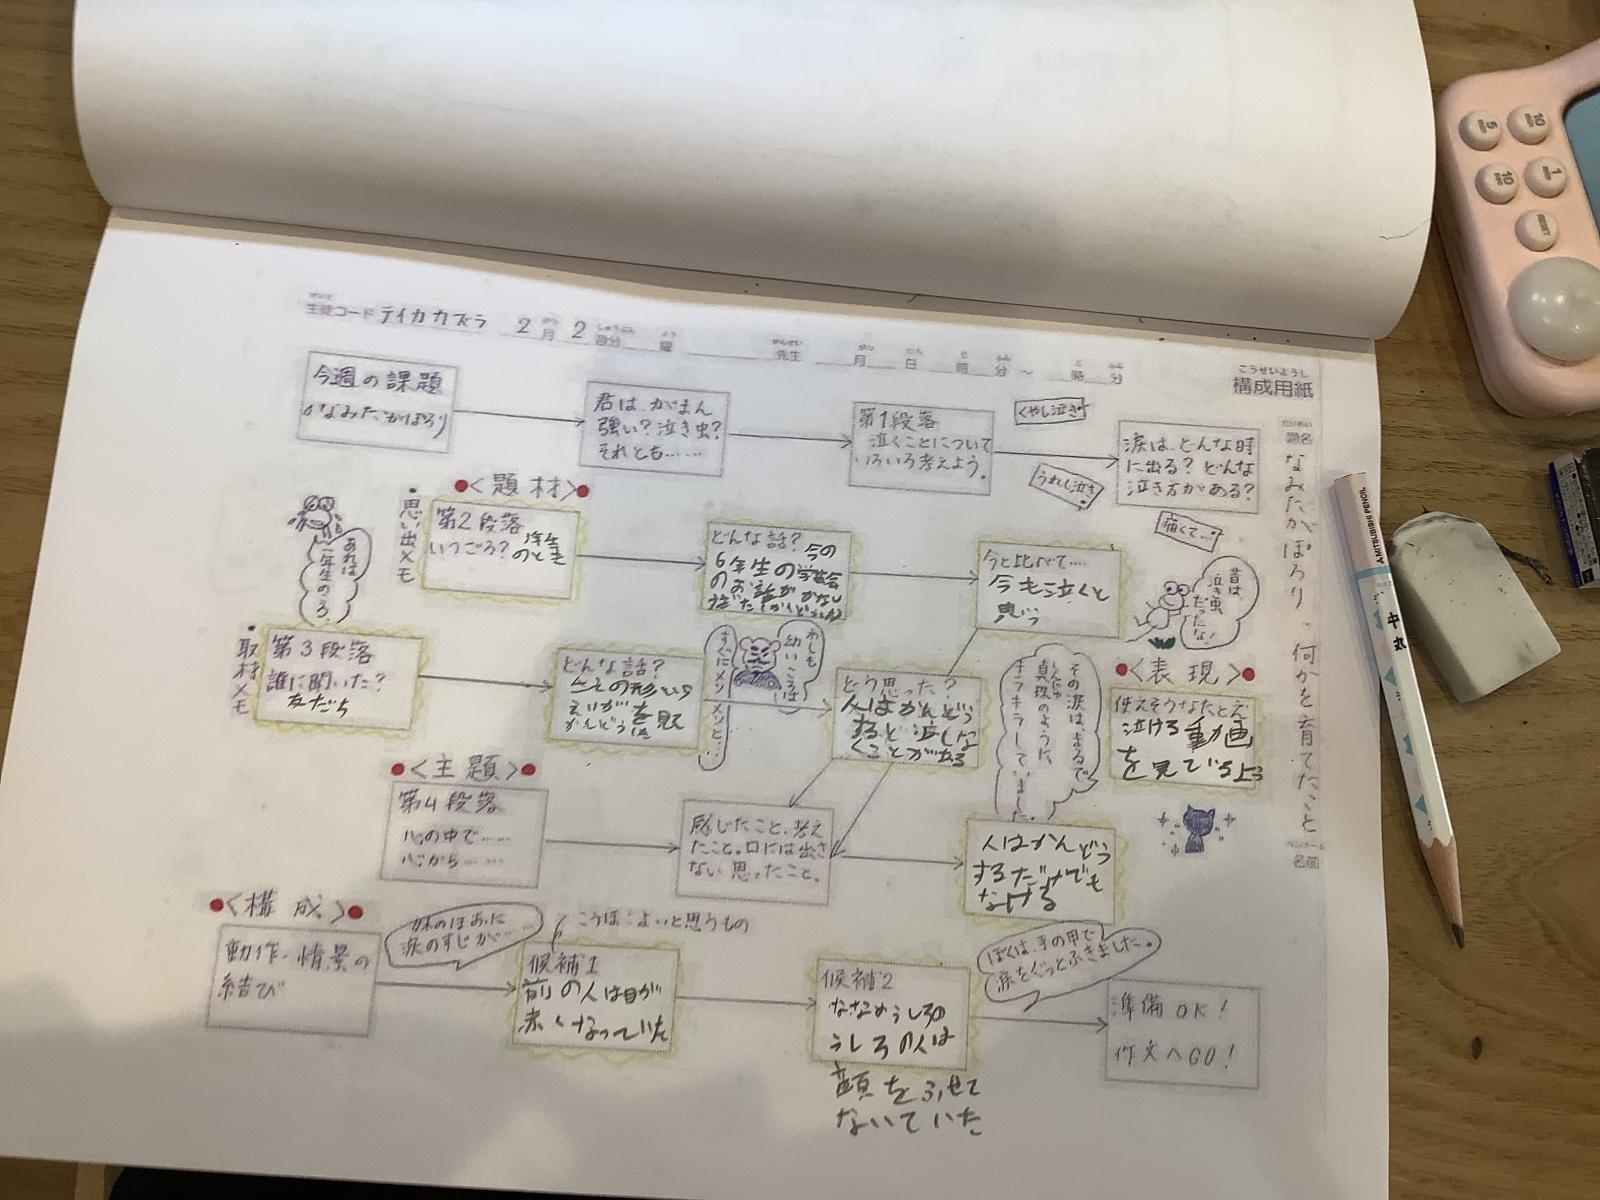 生徒コード テイカカズラ 2月 2週分 曜 先生 月 日 時 分 〜 時 分
構成用紙
こうせいようし
題名 なみだがぽろり、何かを育てたこと
今週の課題
なみだがぽろり
君は、がまん
強い?泣き虫?
それとも……
第1段落
泣くことについて
いろいろ考えよう。
くやし泣き
うれし泣き
痛くて…
涙は、どんな時
に出る? どんな
泣き方がある?
<題材>
・思い出メモ
あれは
一年生のころ
第2段落
いつごろ?
どんな話? 今の
6年生の学芸会
のお話が
今と比べて…
今も泣くと
思う
昔は
泣き虫
だったな!
・取材メモ
第3段落
誰に聞いた?
友だち
どんな話?
わしも
幼いころは
すぐにメソメソと…
どう思った?
人はかんどう
すると涙しな
くことがある
その涙は、まるで
真珠のように、
キラキラしていました。
<表現>
使えそうなたとえ
泣ける動画
を見ているよう
<主題>
第4段落
心の中で……
心から……
感じたこと、考え
たこと。口には出さ
ない思ったこと。
人はかんどう
するだけでも
なける
<構成>
動作・情景の
結び
妹のほおに
涙のすじが……
こうほ:よいと思うもの
候補1
前の人は目が
赤くなっていた
候補2
ななめうしろの
うしろの人は
顔をふせて
ないていた
ぼくは、手の甲で
涙をぐっとふきました。
準備OK!
作文へGO!
MITSUBISHI PENCIL
10
5
1
10
RESET